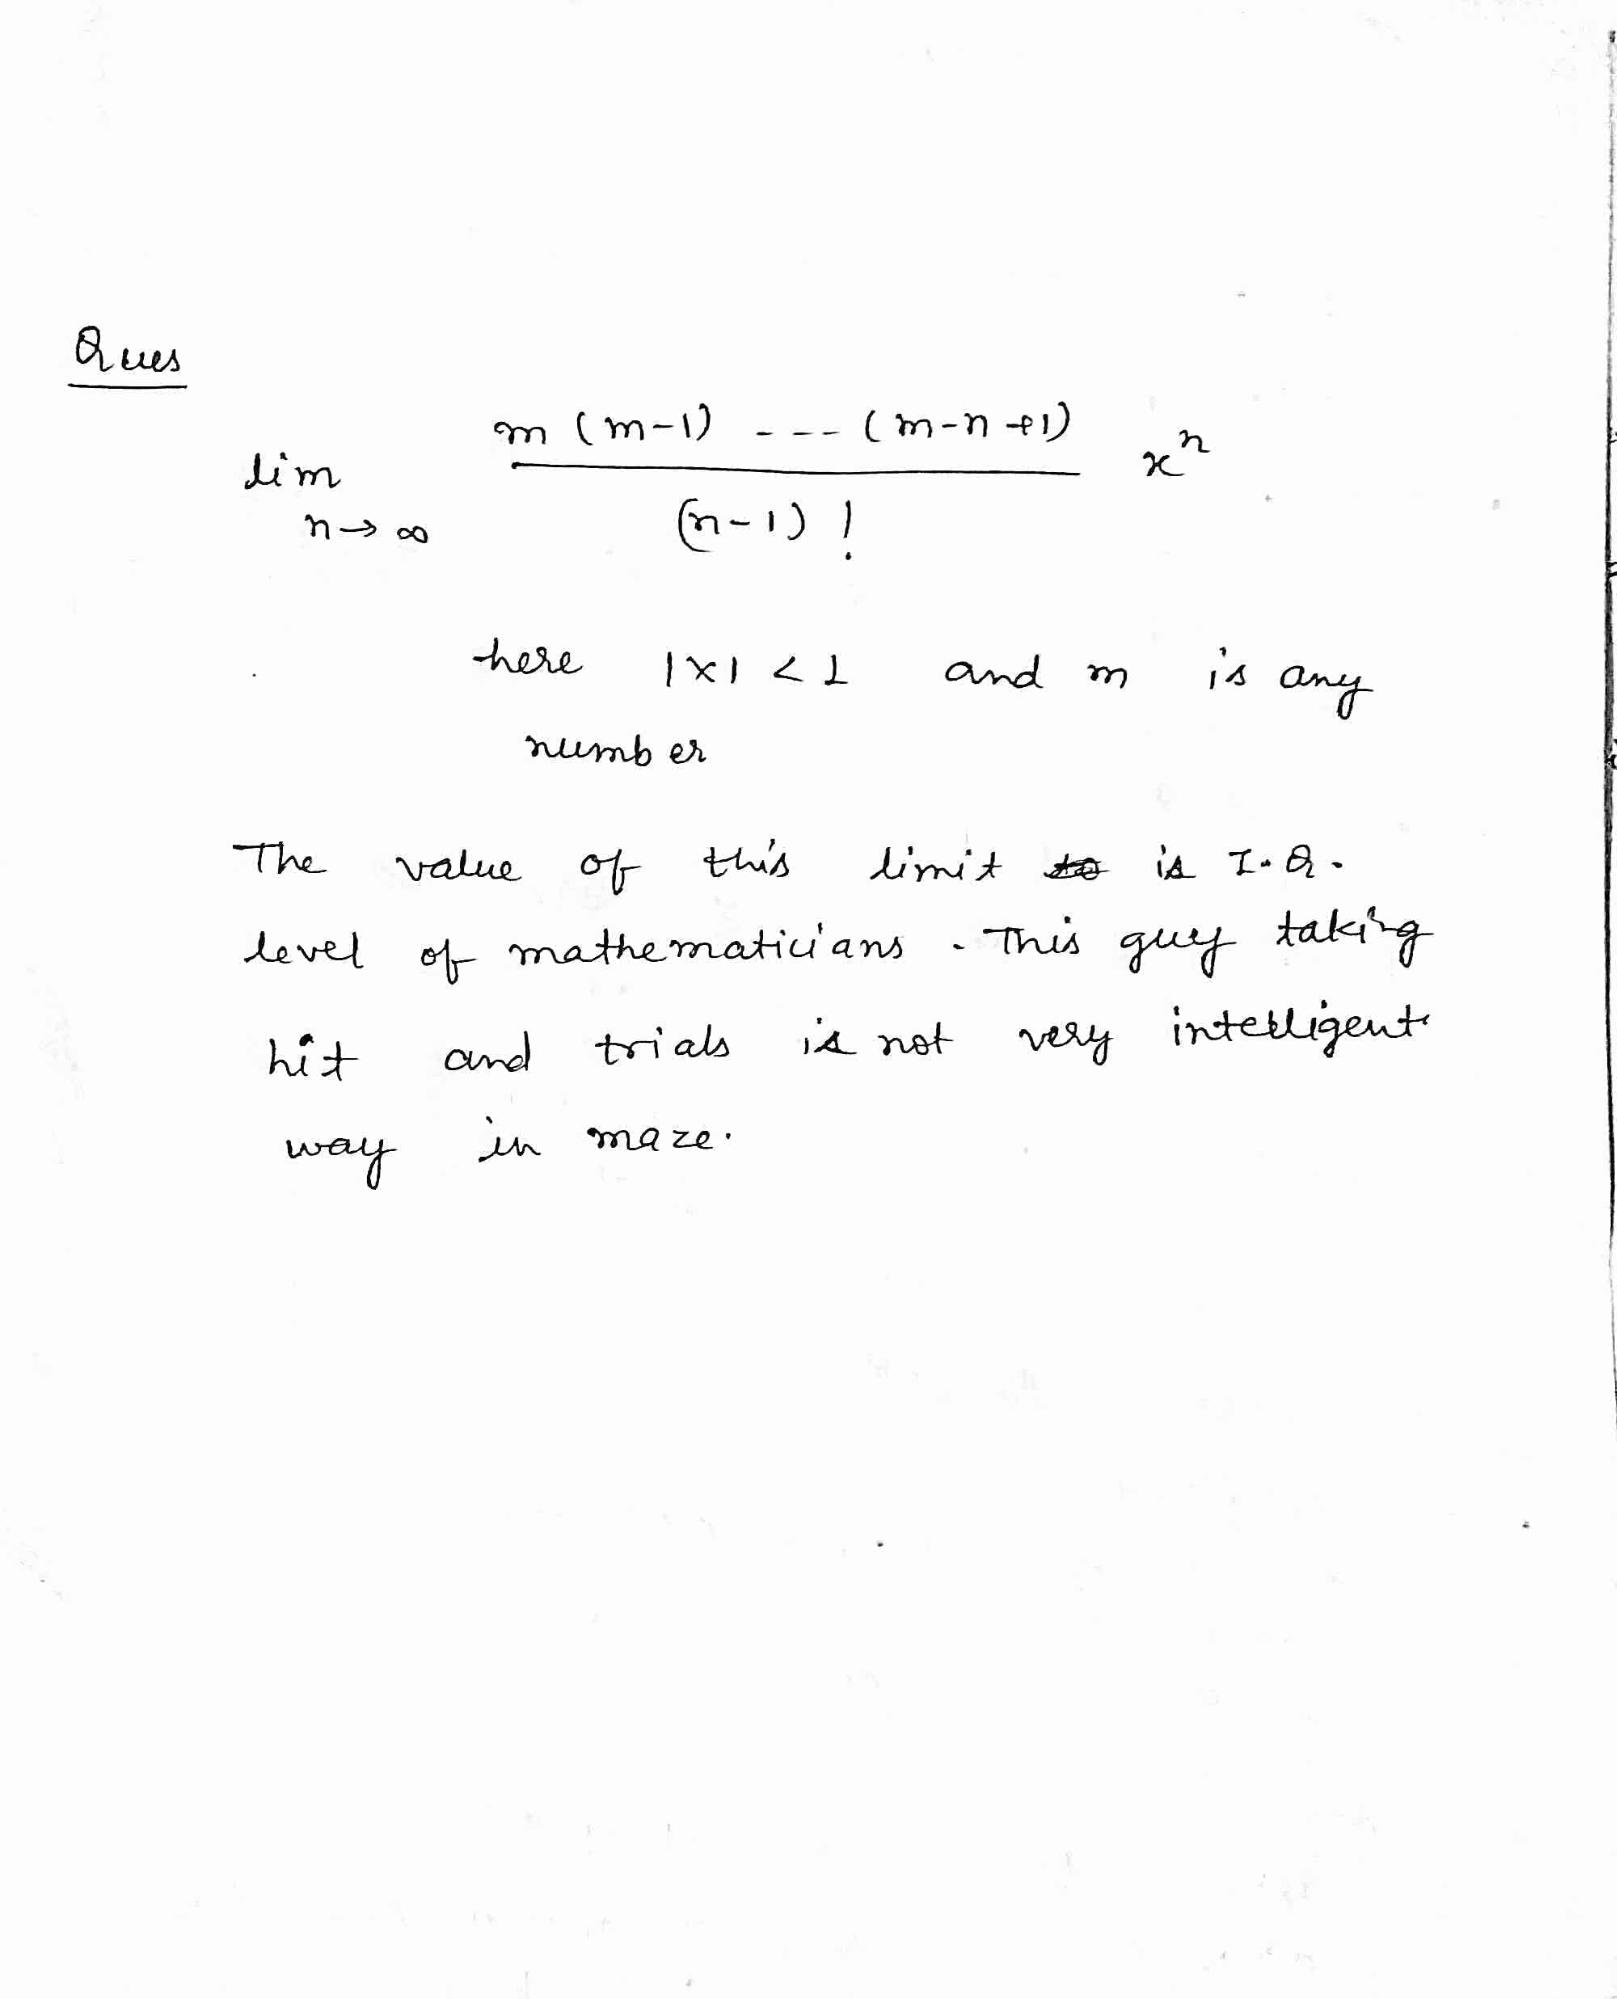 Ques
lim n→∞ m(m-1) ---(m-n+1) / (n-1)! xⁿ
here |x| < 1 and m is any
number
The value of this limit is I.Q.
level of mathematicians. This guy taking
hit and trials is not very intelligent
way in maze.